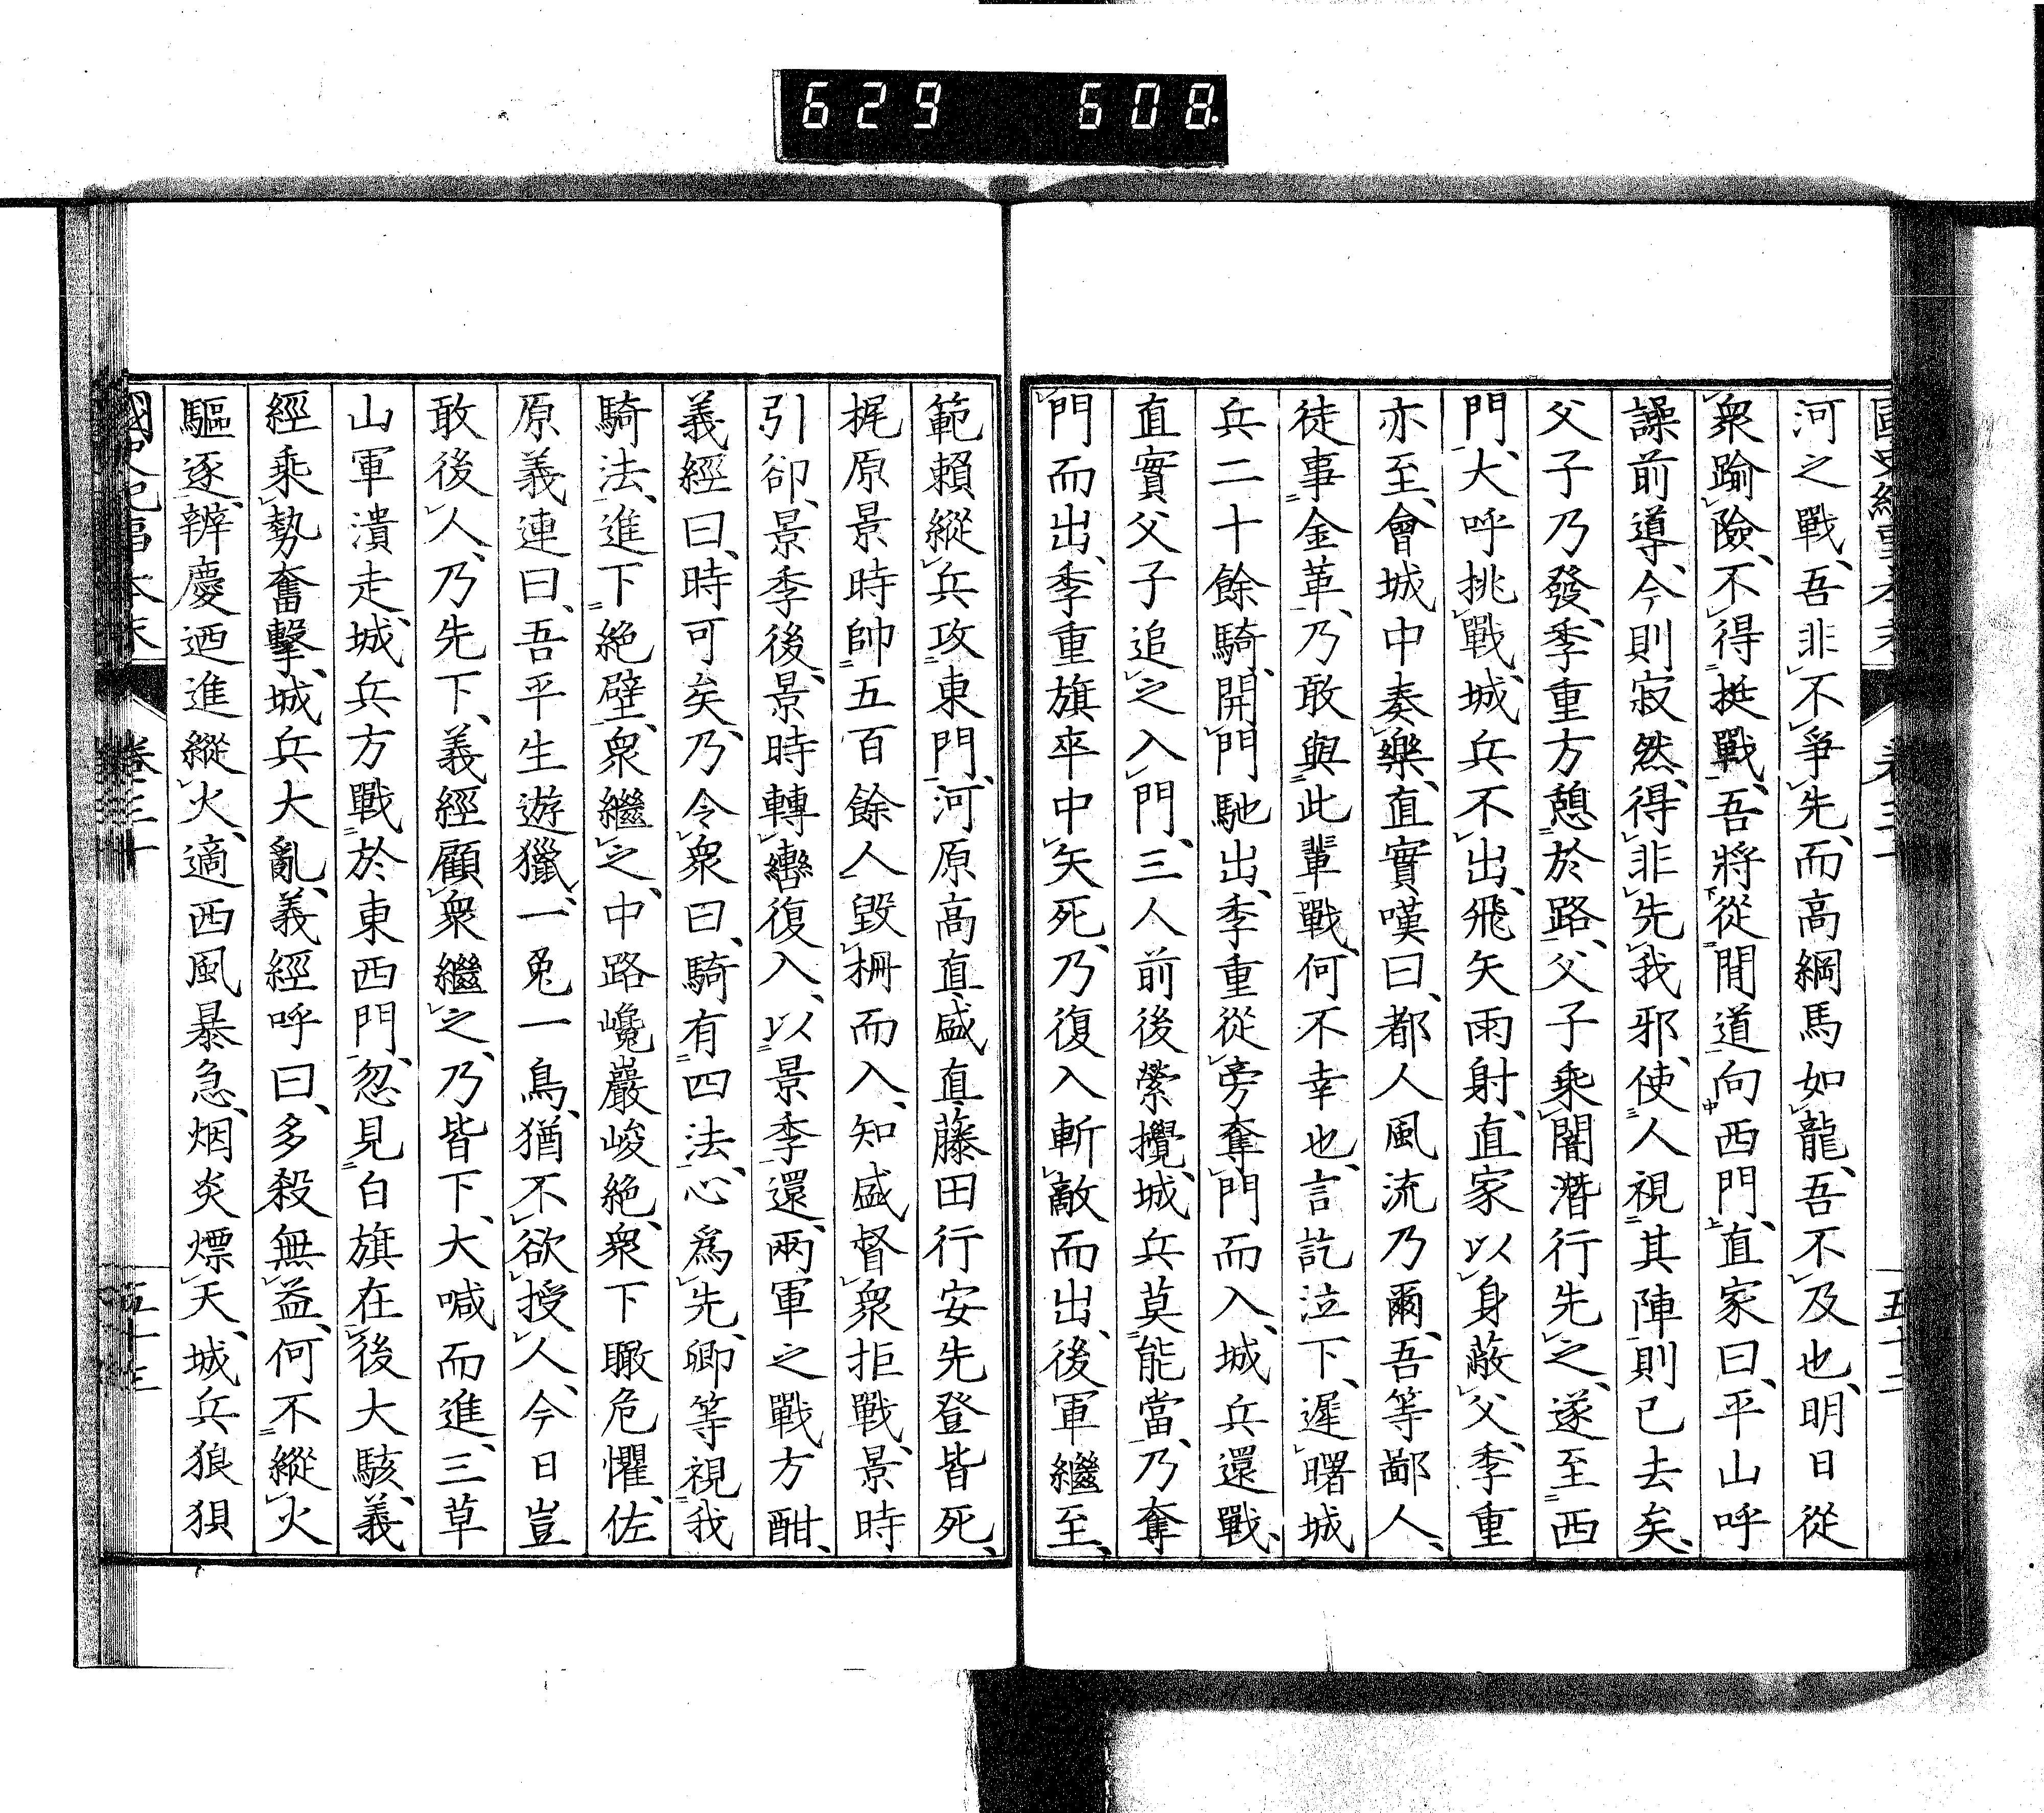 629 608
河之戰、吾非不爭先、而高綱馬如龍、吾不及也、明日從
衆踰險、不得挺戰、吾將從閒道向西門、直家曰、平山呼
譟前導、今則寂然、得非先我邪、使人視其陣則已去矣、
父子乃發、季重方憩於路、父子乘闇潛行先之、遂至西
門、大呼挑戰、城兵不出、飛矢雨射、直家以身蔽父、季重
亦至、會城中奏樂、直實嘆曰、都人風流乃爾、吾等鄙人、
徒事金革、乃敢與此輩戰、何不幸也、言訖泣下、遲曙城
兵二十餘騎、開門馳出、季重從旁奪門而入、城兵還戰、
直實父子追之入門、三人前後縈攪、城兵莫能當、乃奪
門而出、季重旗卒中矢死、乃復入斬敵而出、後軍繼至、
範賴縱兵攻東門、河原高直盛直藤田行安先登皆死、
梶原景時帥五百餘人毀柵而入、知盛督衆拒戰、景時
引卻、景季後、景時轉轡復入、以景季還、兩軍之戰方酣、
義經曰、時可矣、乃令衆曰、騎有四法、心爲先、卿等視我
騎法、進下絕壁、衆繼之、中路巉巖峻絕、衆下瞰危懼、佐
原義連曰、吾平生遊獵、一兔一鳥、猶不欲授人、今日豈
敢後人、乃先下、義經顧衆繼之、乃皆下、大喊而進、三草
山軍潰走、城兵方戰於東西門、忽見白旗在後大駭、義
經乘勢奮擊、城兵大亂、義經呼曰、多殺無益、何不縱火
驅逐、辨慶迺進縱火、適西風暴急、烟炎熛天、城兵狼狽